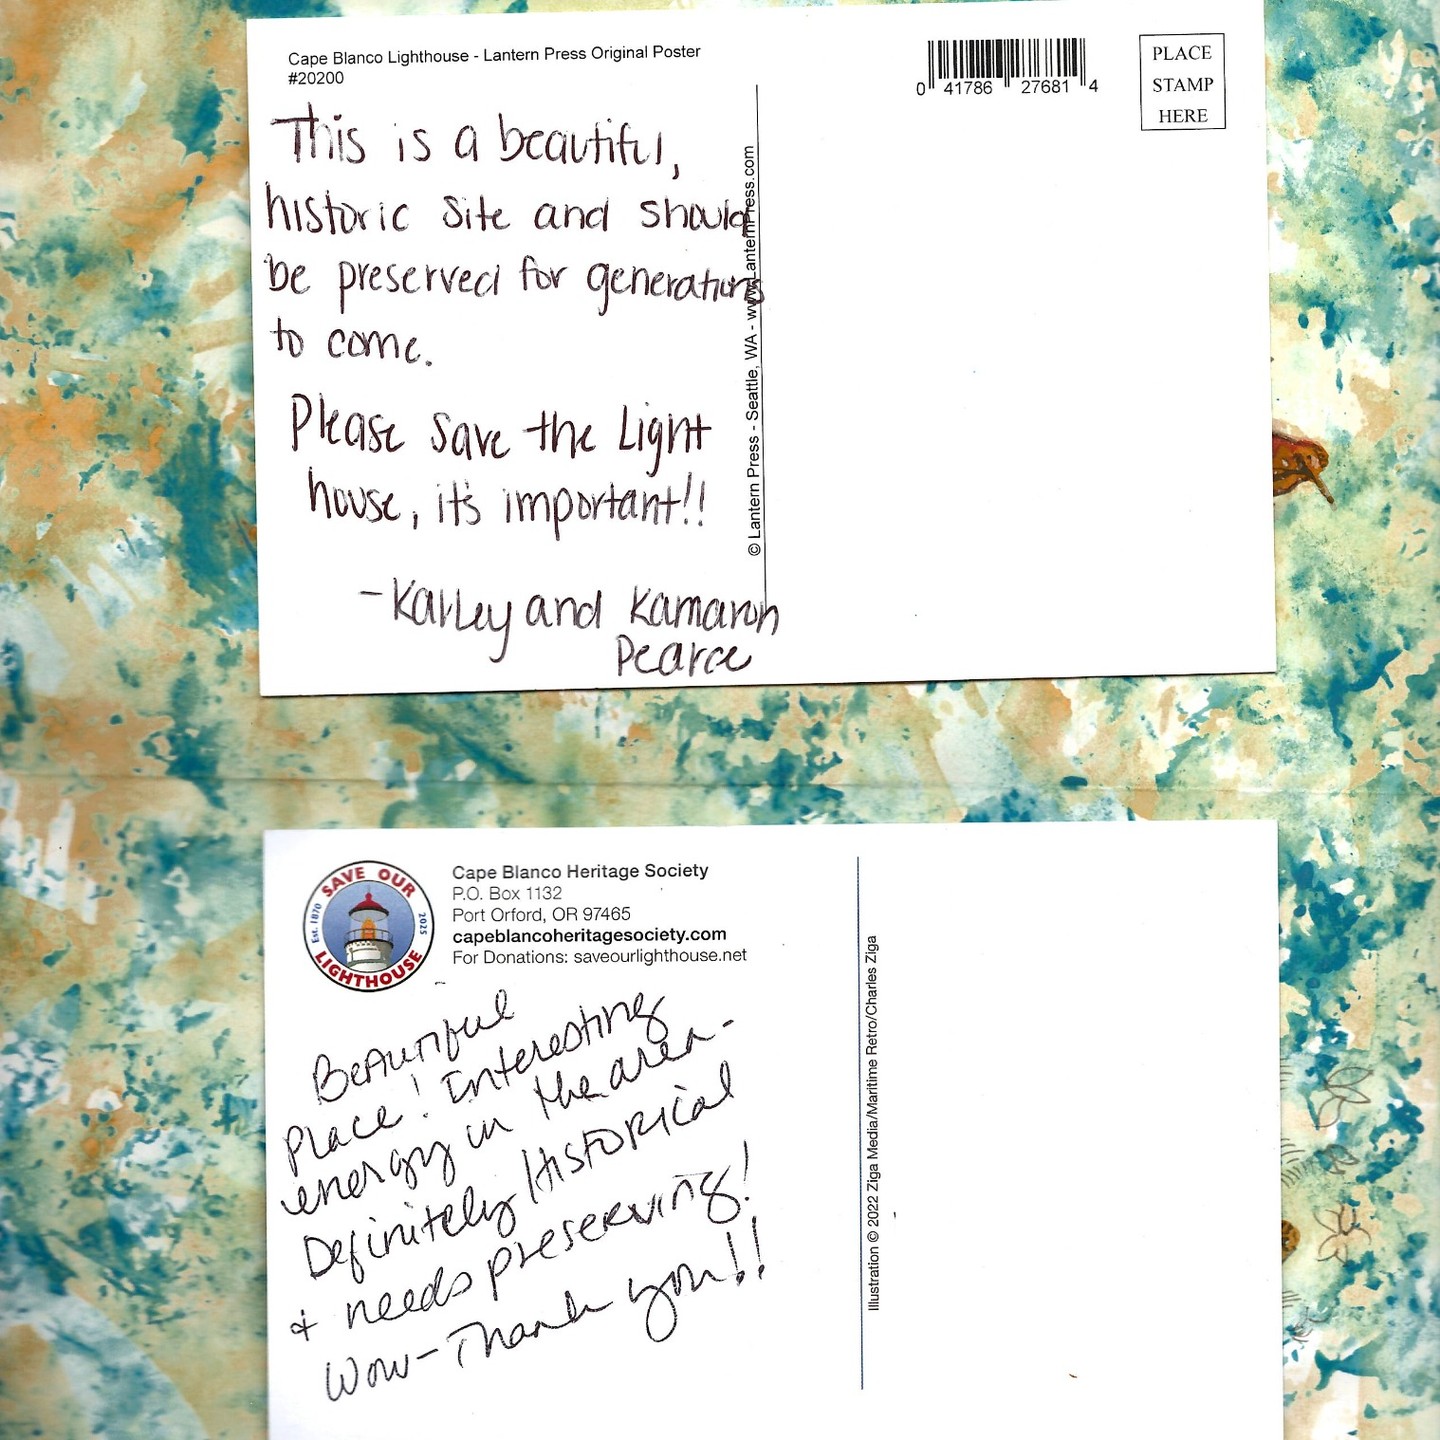 Cape Blanco Lighthouse - Lantern Press Original Poster
#20200
0 41786 27681 4
PLACE
STAMP
HERE
This is a beautiful,
historic site and should
be preserved for generations
to come.
Please save the Light
house, it's important!!
- Karley and Kamaron
Pearce
© Lantern Press - Seattle, WA - www.LanternPress.com
SAVE OUR
Est. 1870
2025
LIGHTHOUSE
Cape Blanco Heritage Society
P.O. Box 1132
Port Orford, OR 97465
capeblancoheritagesociety.com
For Donations: saveourlighthouse.net
Beautiful
Place! Interesting
energy in the area-
Definitely Historical
+ needs preserving!
Wow-Thank you!!
Illustration © 2022 Ziga Media/Maritime Retro/Charles Ziga